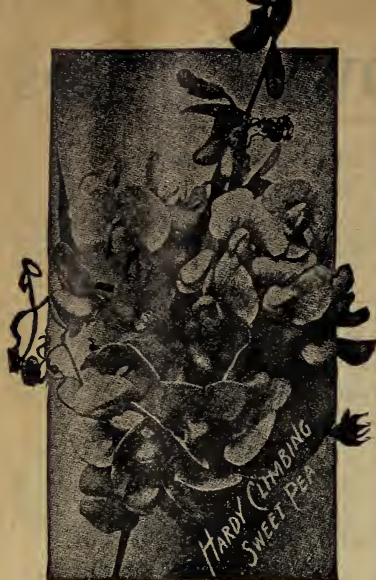 HARDY CLIMBING
SWEET PEA